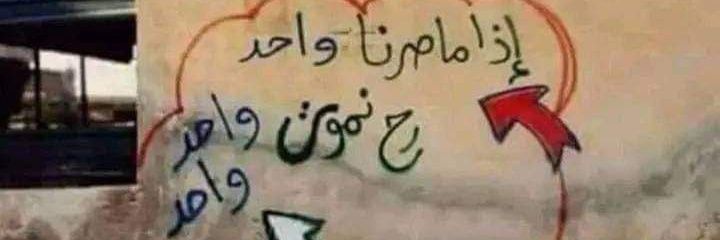 إذا ما صرنا واحد
رح نموت واحد
واحد